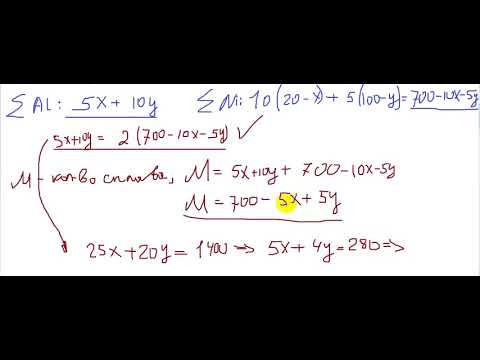 ∑Al: 5x + 10y ∑Ni: 10(20-x) + 5(100-y) = 700-10x-5y
5x+10y = 2(700-10x-5y) ✓
M - кол-во сплава, M = 5x+10y + 700-10x-5y
M = 700 - 5x + 5y
25x + 20y = 1400 => 5x + 4y = 280 =>